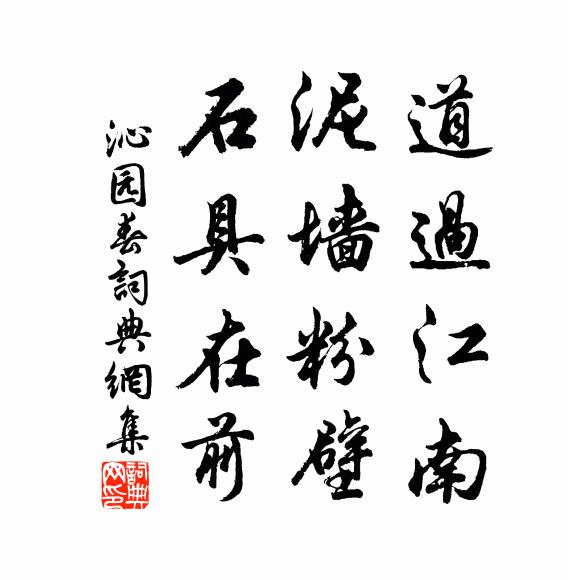 道過江南
泥墙粉壁
石具在前
沁园春詞典網集
詞典网印